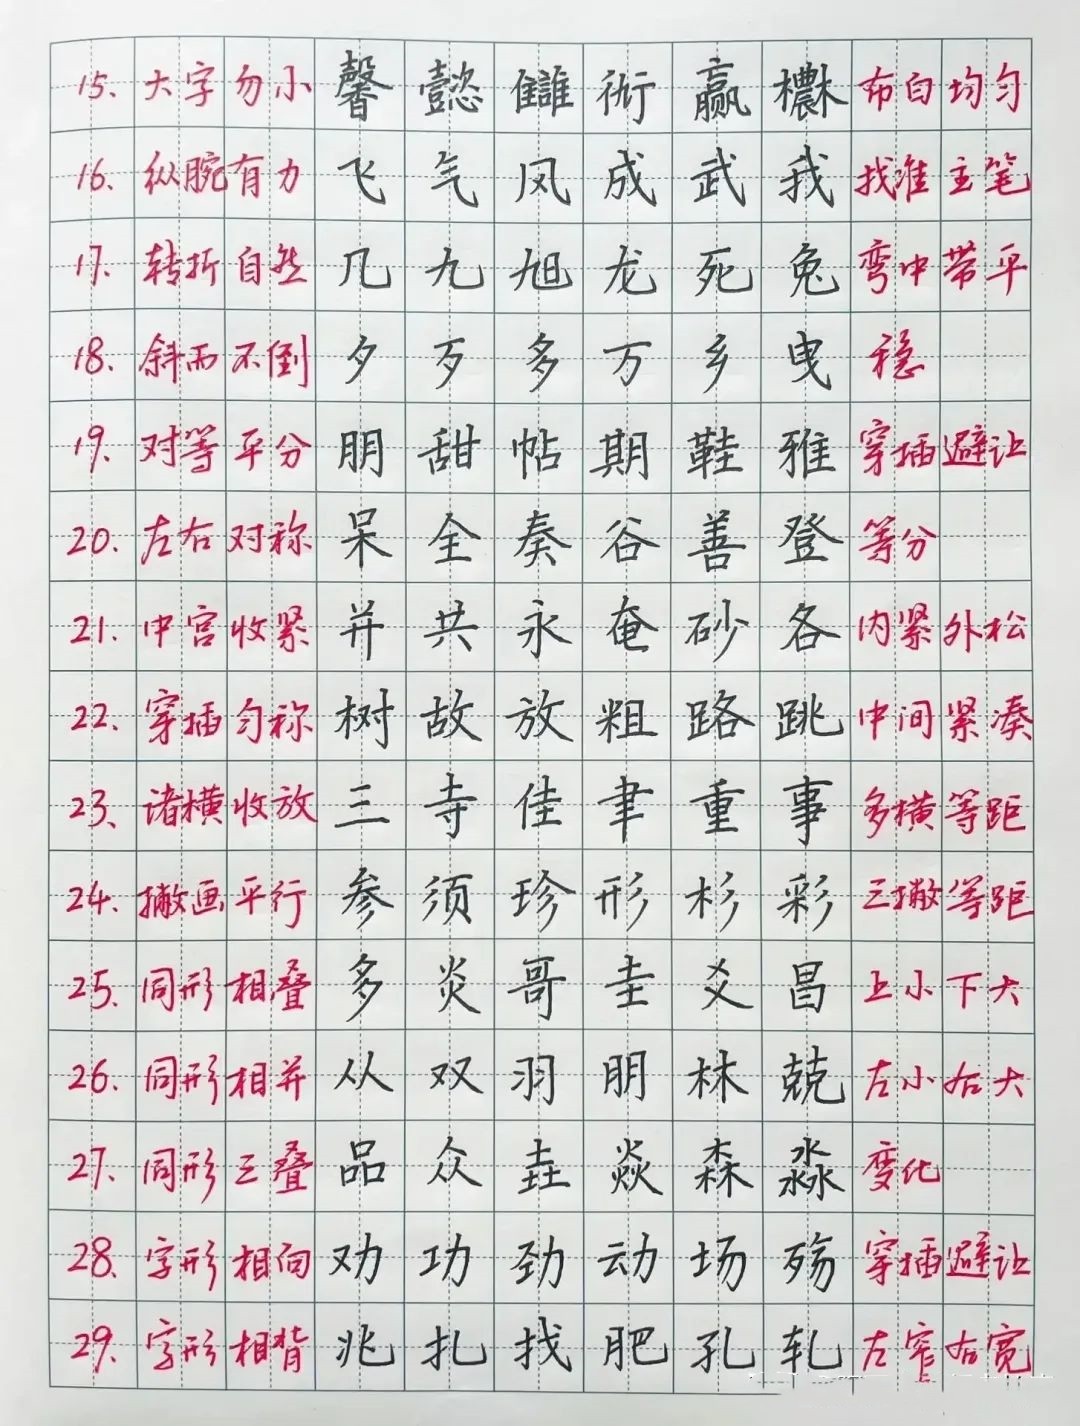 15、大字勿小 馨 懿 讎 赢 布白均匀
16、纵腕有力 飞 气 风 成 武 我 找准主笔
17、转折自然 几 九 旭 龙 死 兔 弯中带平
18、斜而不倒 夕 歹 多 万 乡 曳 稳
19、对等平分 朋 甜 帖 期 鞋 雅 穿插避让
20、左右对称 呆 全 奏 谷 善 登 等分
21、中宫收紧 并 共 永 奄 砂 各 内紧外松
22、穿插匀称 树 故 放 粗 路 跳 中间紧凑
23、诸横收放 三 寺 佳 聿 重 事 多横等距
24、撇画平行 参 须 珍 形 杉 彩 三撇等距
25、同形相叠 多 炎 哥 圭 爻 昌 上小下大
26、同形相并 从 双 羽 朋 林 兢 左小右大
27、同形三叠 品 众 垚 焱 森 淼 变化
28、字形相向 劝 功 劲 动 场 殇 穿插避让
29、字形相背 兆 扎 找 肥 孔 轧 左窄右宽